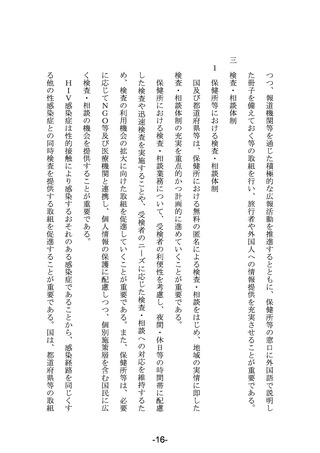 つつ、報道機関等を通じた積極的な広報活動を推進するとともに、保健所等の窓口に外国語で説明し
た冊子を備えておく等の取組を行い、旅行者や外国人への情報提供を充実させることが重要である。
三 検査・相談体制
1 保健所等における検査・相談体制
国及び都道府県等は、保健所における無料の匿名による検査・相談をはじめ、地域の実情に即した
検査・相談体制の充実を重点的かつ計画的に進めていくことが重要である。
保健所における検査・相談業務について、受検者の利便性を考慮し、夜間・休日等の時間帯に配慮
した検査や迅速検査を実施することや、受検者のニーズに応じた検査・相談への対応を維持するた
め、検査の利用機会の拡大に向けた取組を促進していくことが重要である。また、保健所等は、必要
に応じてNGO等及び医療機関と連携し、個人情報の保護に配慮しつつ、個別施策層を含む国民に広
く検査・相談の機会を提供することが重要である。
HIV感染症は性的接触により感染するおそれのある感染症であることから、感染経路を同じくす
る他の性感染症との同時検査を提供する取組を促進することが重要である。国は、都道府県等の取組
-16-